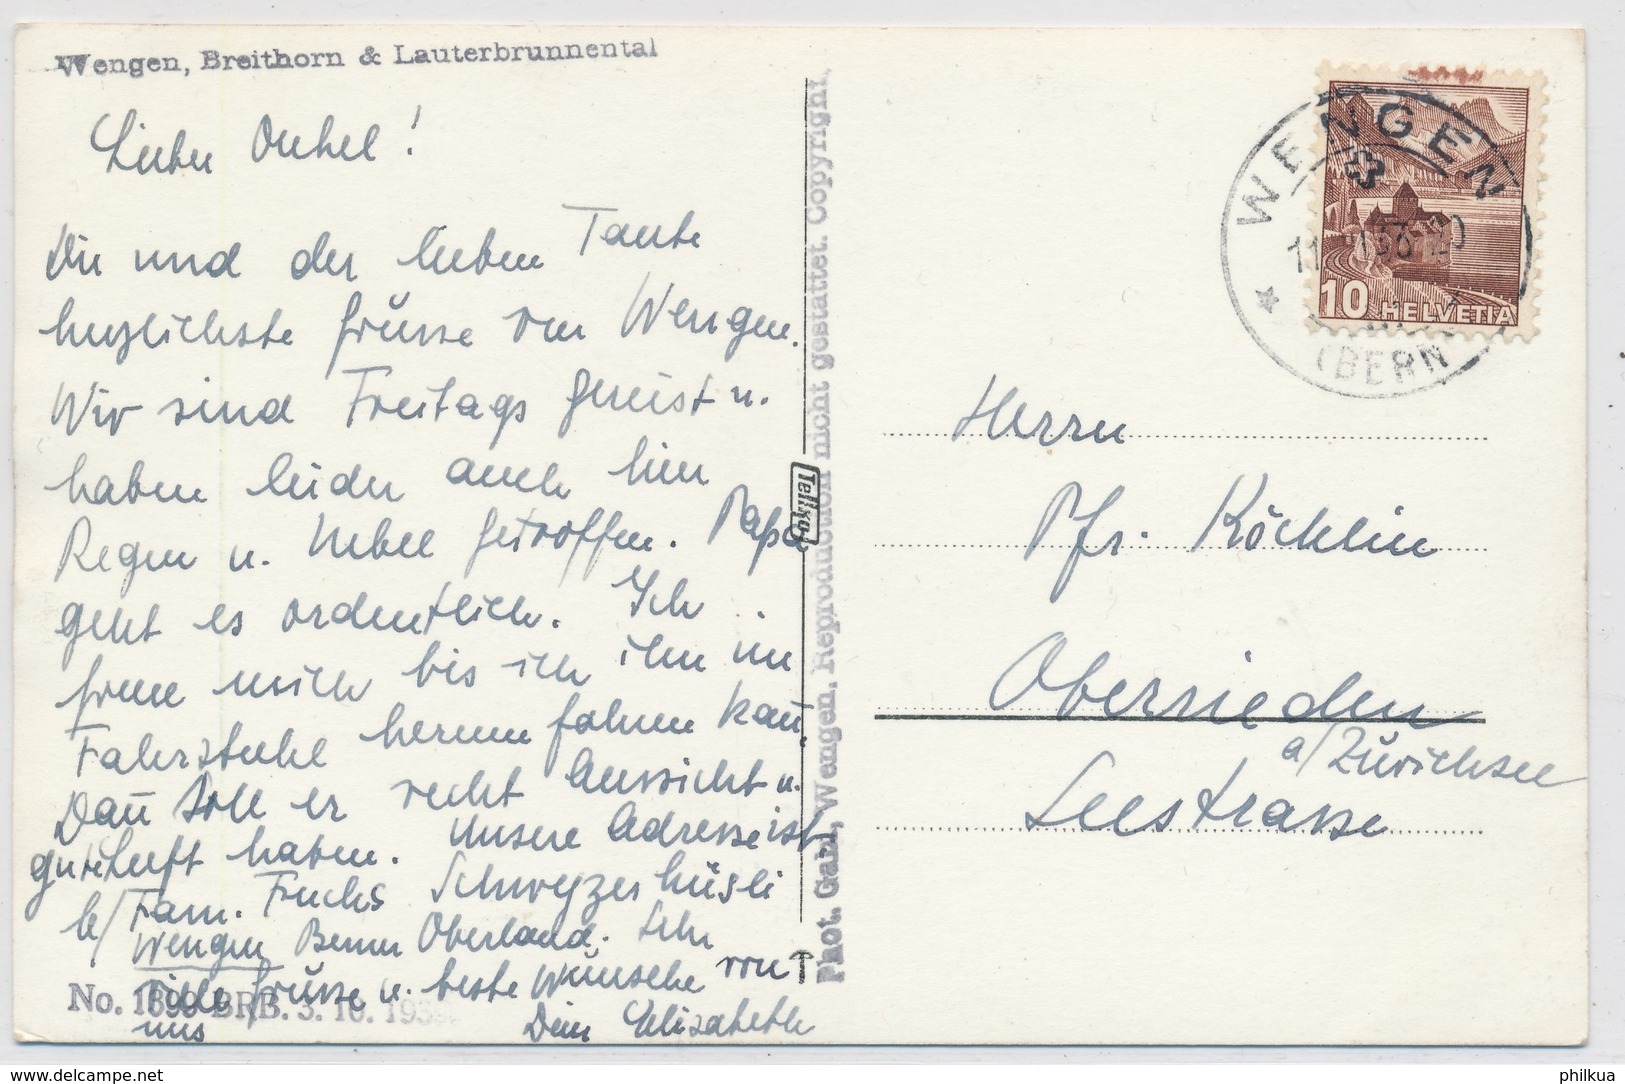 Wengen, Breithorn & Lauterbrunnental
Lieber Onkel!
Dir und der lieben Tante
herzlichste Grüsse von Wengen.
Wir sind Freitags gereist u.
haben leider auch hier
Regen u. Nebel getroffen. Papa
geht es ordentlich. Ich
freue mich bis ich ihn im
Fahrstuhl herum fahren kañ.
Dañ soll er recht Aussicht u.
gute Luft haben. Unsere Adresse ist
b/ Fam. Fuchs Schwyzerhüsli
Wengen Berner Oberland. Sehr
viele Grüsse u. beste Wünsche von
uns Dein Elisabeth
No. 1899 BRB. 3. 10. 1939
Phot. Gabi, Wengen. Reproduktion nicht gestattet. Copyright.
Tellko
WENGEN
(BERN
10 HELVETIA
Herrn
Pfr. Köchlin
Oberrieden
a/Zürichsee
Seestrasse
philkua
www.delcampe.net